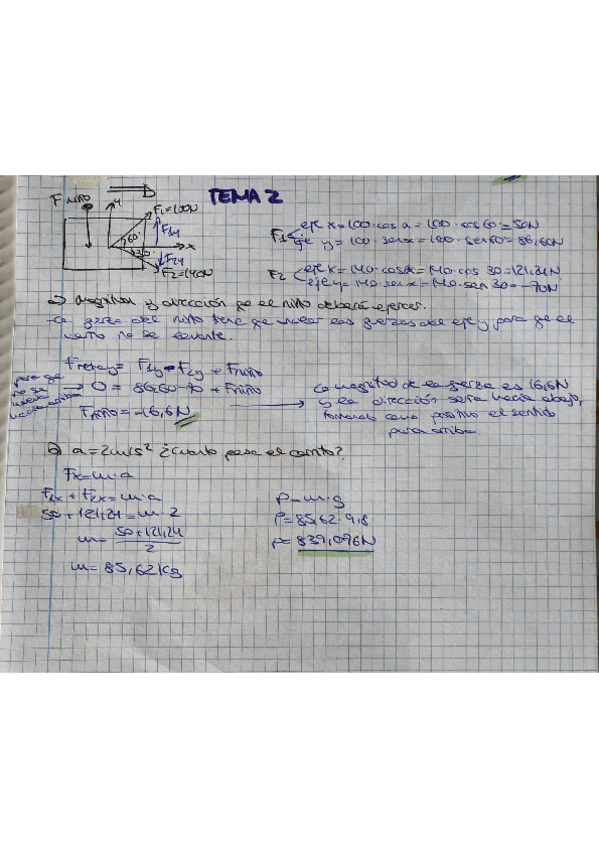 TEMA 2
F niño
y
F₁=100N
F1y
60°
x
30°
F2y
F₂=140N
F1 eje x = 100·cos α = 100·cos 60 = 50N
eje y = 100·sen α = 100·sen 60 = 86,60N
F2 eje x = 140·cos α = 140·cos 30 = 121,24N
eje y = 140·sen α = 140·sen 30 = -70N
a) magnitud y dirección que el niño deberá ejercer.
-La fuerza del niño tiene que anular las fuerzas del eje y para que el
carrito no se levante.
Fneta y = F1y - F2y + Fniño
para que no se mueva hacia arriba → 0 = 86,60-70 + Fniño
Fniño = -16,6N
La magnitud de la fuerza es 16,6N
y la dirección sería hacia abajo,
tomando como positivo el sentido
para arriba.
b) a = 2m/s² ¿Cuánto pesa el carrito?
Fx = m·a
F1x + F2x = m·a
50 + 121,24 = m·2
m = 50+121,24 / 2
m = 85,62 kg
P = m·g
P = 85,62·9,8
P = 839,076N